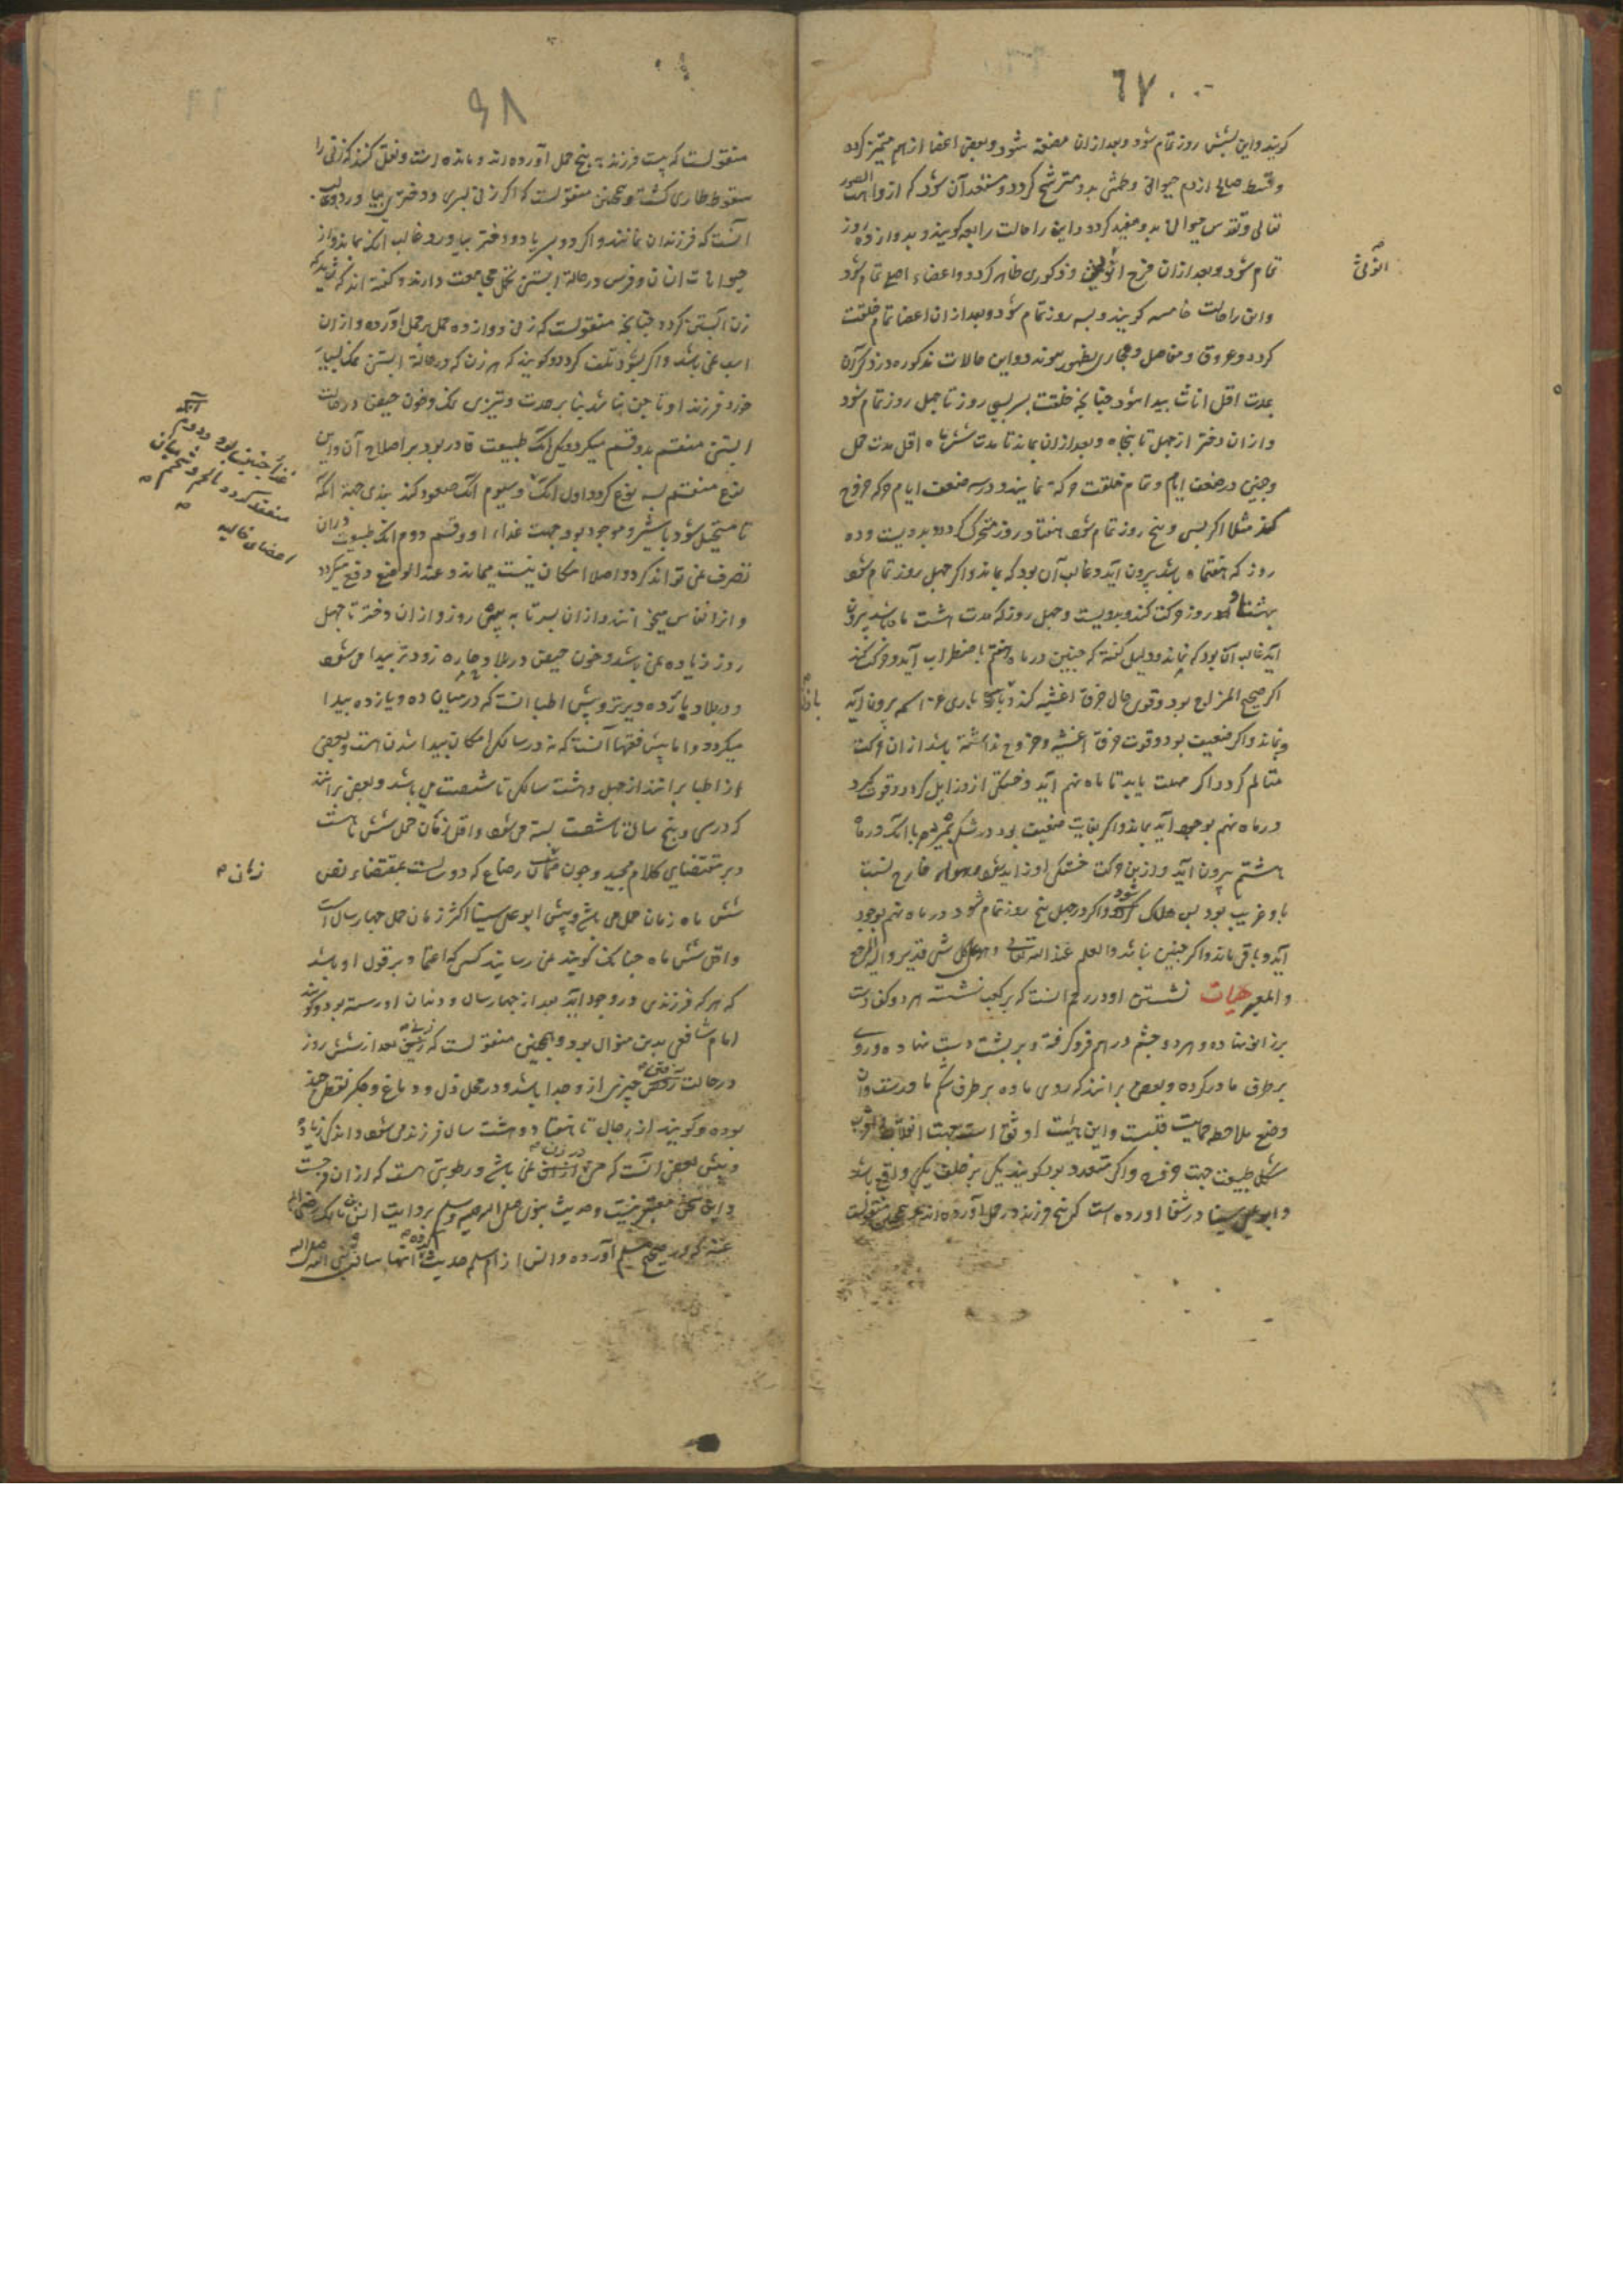 ٦٧
کویند و این بشش روز تمام شود و بعد از ان مضغه شود و بعضی اعضا از هم متمیز کردد
و قسط صالح از دم حیوانی و طمثی بدو مترشح کردد و مستعد آن شود که از واهب الصور
تعالی و تقدس حیوانی بدو مفید کردد و این را حالت رابعه کویند و بدوازده روز
تمام شود و بعد از ان فرج انوثی و ذکوری ظاهر کردد و اعضاء اصلی تمام شود
انوثی
و این را حالت خامسه کویند و بسه روز تمام شود و بعد از ان اعضا تمام خلقت
کردد و عروق و مفاصل و مجاری بظهور پیوندد و این حالات مذکوره در ذکران
بمدت اقل اناث پیدا شود چنانچه خلقت پسر بسی روز تا چهل روز تمام شود
و از ان دختر از چهل تا پنجاه و بعد از ان بماند تا مدت شش ماه اقل مدت حمل
و جنین در ضعف ایام و تمام خلقت حرکة نماید و در سه ضعف ایام حرکه خروج
کند مثلا اکر بسی و پنج روز تمام شود هفتاد روز متحرک کردد و بدویست و ده
روز که هفتماه باشد بیرون آید و غالب آن بود که بماند و اکر چهل روز تمام شود
بهشتاد روز حرکت کند و بدویست و چهل روز که مدت هشت ماه باشد بیرون
آید غالب آن بود که نماند و دلیل کفته که جنین در ماه هفتم باضطراب آید و حرکت کند
اکر صحیح المزاج بود و قوی حال خرق اغشیه کند و باری عز اسمه بیرون آید
و بماند و اکر ضعیف بود و قوت خرق اغشیه و خروج نداشته باشد از ان حرکت
متالم کردد اکر مهلت یابد تا ماه نهم آید و خستکی از و زایل کردد و قوت کیرد
در ماه نهم بوجود آید بماند و اکر بغایت ضعیف بود در شکم بمیرد یا آنکه در ماه
هشتم بیرون آید و از بین حرکت خستکی او زاید شود و هواء خارج نسبت
باو غریب بود پس هلاک شود و اکر در چهل پنج روز تمام شود در ماه نهم بوجود
آید و باقی ماند و اکر جنین نباشد والعلم عند الله تعالی و هو علی کل شی قدیر والیه المرجع
والمصیر هیات نشستن او در رحم انست که بر کعب نشسته هر دو کف دست
بر زانو نهاده و هر دو چشم در هم فرو کرفته و بر پشت دست نهاده و روی
بر طرف مادر کرده و بعضی بر انند که روی ماده بر طرف شکم مادرست و ان
وضع ملاحظه حمایت قلبست و این هیئت اوثق است جهت انقلاب
شکل طبیعت جهت خروج و اکر متعدد بود کویند یکی بر خلف یکی واقع باشد
و ابوعلی سینا در شفا اورده است که پنج فرزند در حمل آورده اند و همچنین منقولست
٦٨
منقولست که بیست فرزند به پنج حمل آورده اند و مانده است و نقل کنند که زنی را
سقوط طاری کشت و همچنین منقولست که اکر زنی پسری و دختری بیاورد غالب
آنست که فرزندان نمانند و اکر دو پسر یا دو دختر بیاورد غالب آنکه بماند و از
حیوانات انسان و فرس در حالة ابستنی تحمل مجامعت دارند و کفته اند که
زن آبستن کردد چنانچه منقولست که زنی دوازده حمل بر حمل آورده و از ان
اسب نمی باشد و اکر بشود تلف کردد و کویند که هر زن که در حالة ابستنی نمک بسیار
خورد فرزند او ناخن نباشد بنا بر حدت و تیزی نمک و خون حیض در حالت
ابستنی منقسم بدو قسم میکردد یکی آنک طبیعت قادر بود بر اصلاح آن و این
نوع منقسم بسه نوع کردد اول آنک و سیوم آنک صعود کند بثدی جهة آنکه
غذاء جنین بود و دوم آنکه
منعقد کردد بالحم و شحم میان
اعضای خالیه
تا مستحیل شود بشیر و موجود بود جهت غذاء او و قسم دوم آنک طبیعت در ان
تصرف نمی تواند کرد و اصلا امکان نیست میماند و عند الوضع دفع میکردد
و انرا نفاس میخوانند و از ان پسر تا به سی روز و از ان دختر تا چهل
روز زیاده نمی باشد و خون حیض در بلاد حاره زودتر پیدا می شود
و در بلاد بارده دیرتر و پیش اطبا انست که در میان ده و یازده پیدا
میکردد و اما پیش فقها آنست که نه در سالکی امکان پیدا شدن هست و بعضی
از اطبا بر انند از چهل و هشت سالکی تا شصت می باشد و بعضی بر انند
که در سی و پنج سال تا شصت بسته می شود و اقل زمان حمل شش ماه است
و بر مقتضای کلام مجید و چون زمان رضاع که دو سالست بمقتضاء نص
زمان
شش ماه زمان حمل می باشد و پیش ابو علی سینا اکثر زمان حمل چهار سال است
و اقل شش ماه چنانک کویند می رسانند کسی که اعتماد بر قول او باشد
که هر که فرزندی در وجود آید بعد از چهار سال و دندان او رسته بود و کویند
امام شافعی بدین منوال بود و همچنین منقولست که بعد از شش روز
در حالت چیزی از و جدا باشد و در محل دل و دماغ و جکر نقطه چند
بوده و کویند از رجال تا هفتاد و هشت سال فرزند می شود و اندکی زیاده
و پیش بعضی انست که منی در زن نمی باشد و رطوبتی هست که از ان
و این سخن معتبر نیست و حدیث نبوی صلی الله علیه وسلم بروایت انس بن مالک رضی الله
عنه که در صحیح مسلم آورده و انس از ام سلیم حدیث کرده انها سالت نبی الله صلی الله